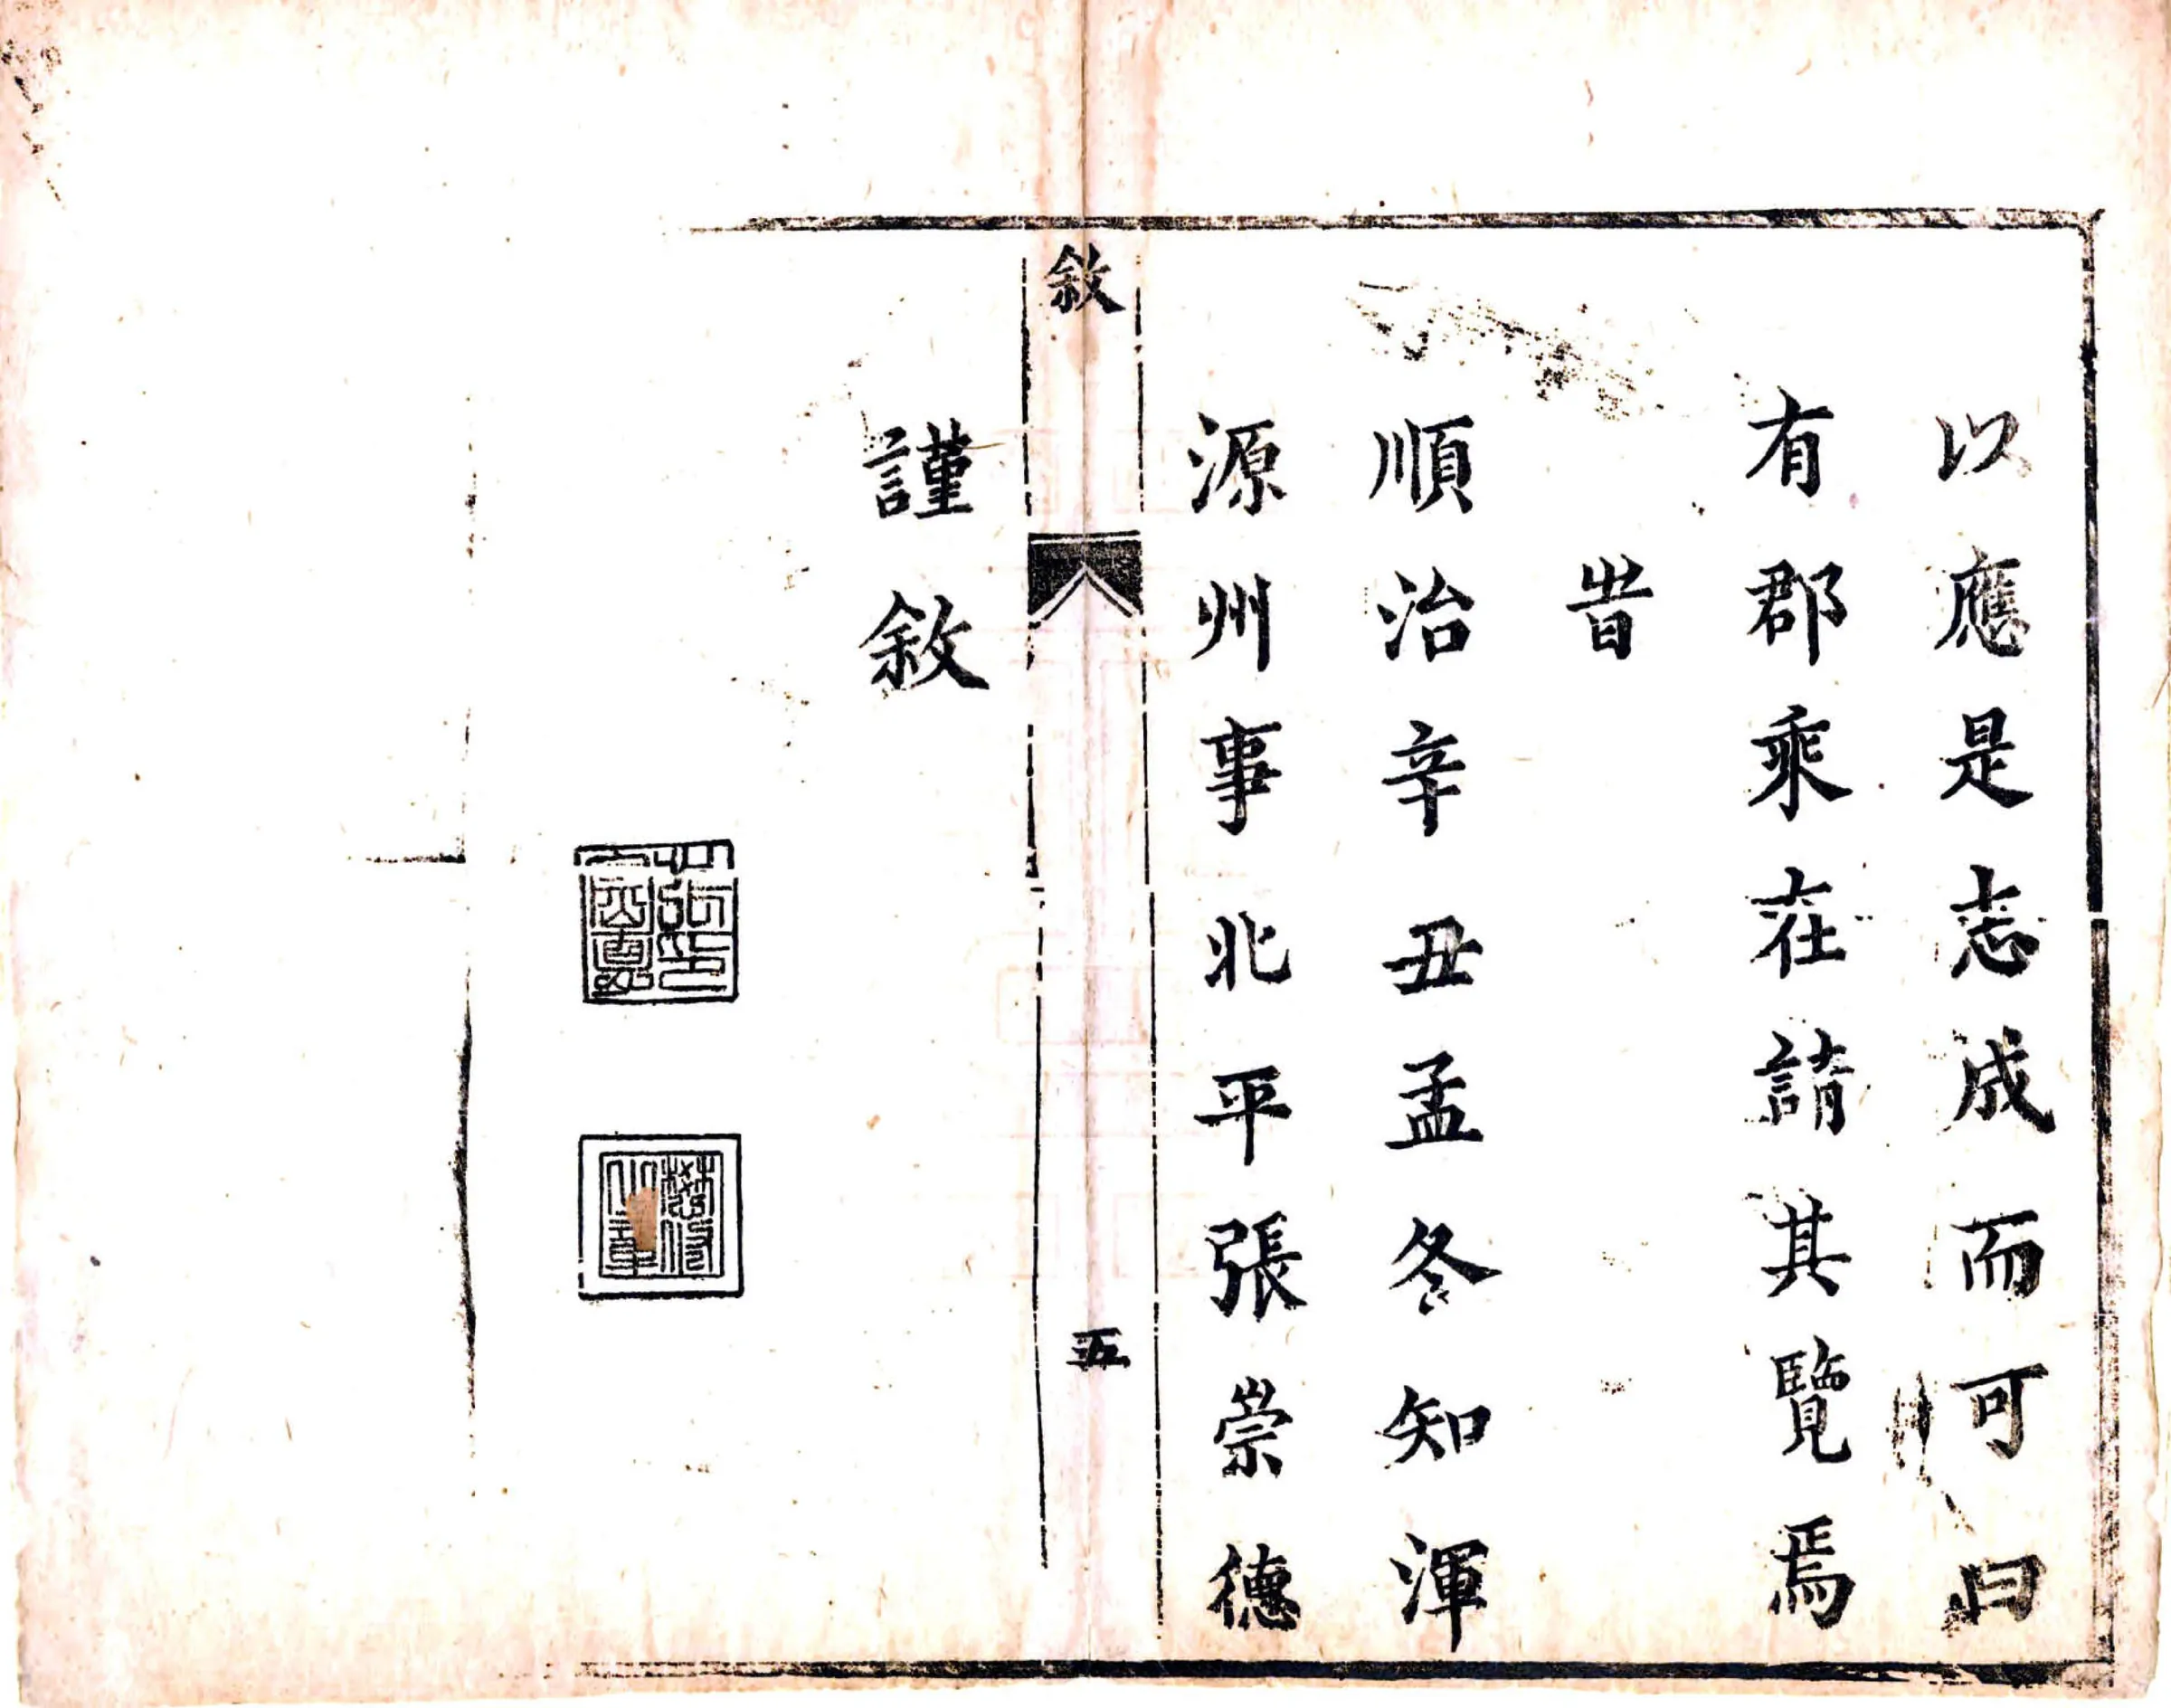 以應是志成而可曰
有郡乘在請其覽焉
昔
順治辛丑孟冬知渾
源州事北平張崇德
敘
五
謹敘